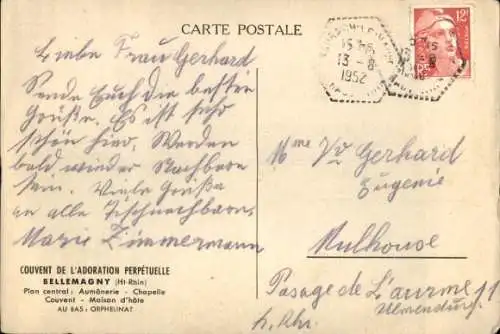 CARTE POSTALE
Liebe Frau Gerhard
Sende Euch die besten
Grüße. Es ist sehr
schön hier. Werden
bald wieder Nachbarn
sein. Viele Grüße
an alle Tischnachbarn,
Marie Zimmermann
COUVENT DE L'ADORATION PERPÉTUELLE
BELLEMAGNY (Ht-Rhin)
Plan central : Aumônerie - Chapelle
Couvent - Maison d'hôte
AU BAS : ORPHELINAT
15 -
13 - 8
1952
12F
Mme Vv Gerhard
Eugenie
Mulhouse
Passage de L'aurme 11
h. Rhi